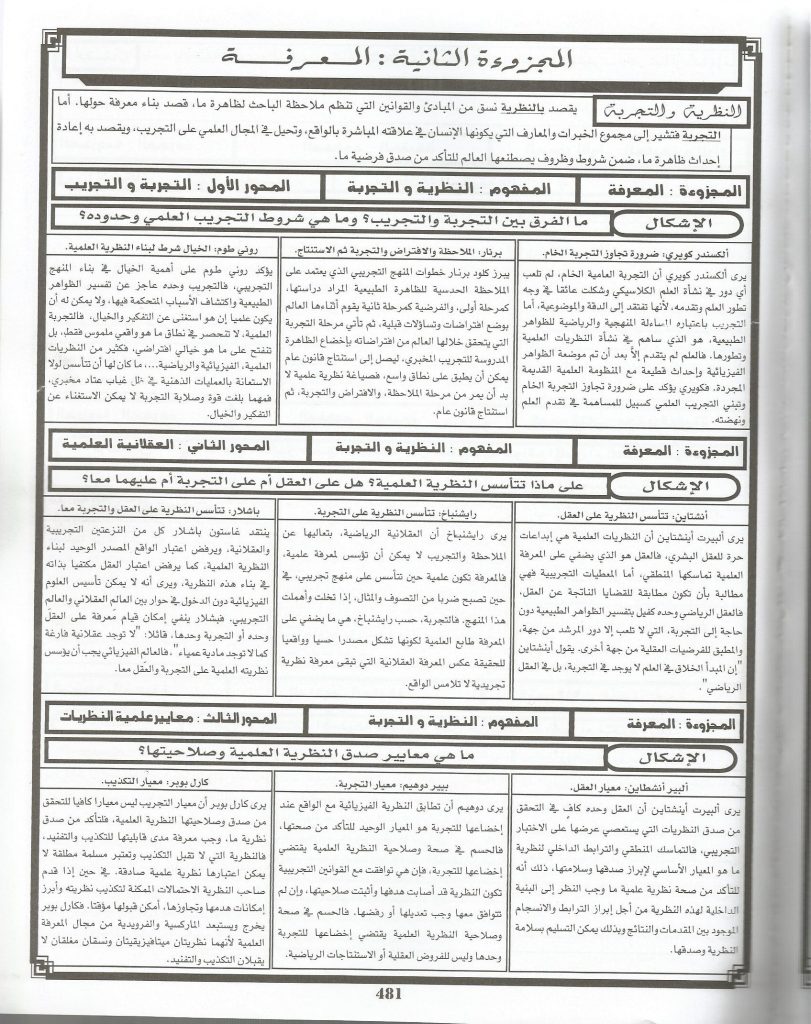 المجزوءة الثانية : المعرفة
النظرية والتجربة
يقصد بالنظرية نسق من المبادئ والقوانين التي تنظم ملاحظة الباحث لظاهرة ما، قصد بناء معرفة حولها. أما
التجربة فتشير إلى مجموع الخبرات والمعارف التي يكونها الإنسان في علاقته المباشرة بالواقع، وتحيل في المجال العلمي على التجريب، ويقصد به إعادة
إحداث ظاهرة ما، ضمن شروط وظروف يصطنعها العالم للتأكد من صدق فرضية ما.
المجزوءة : المعرفة
المفهوم : النظرية و التجربة
المحور الأول : التجربة و التجريب
الإشكال
ما الفرق بين التجربة والتجريب؟ وما هي شروط التجريب العلمي وحدوده؟
ألكسندر كويري: ضرورة تجاوز التجربة الخام.
يرى ألكسندر كويري أن التجربة العامية الخام، لم تلعب
أي دور في نشأة العلم الكلاسيكي وشكلت عائقا في وجه
تطور العلم وتقدمه، لأنها تفتقد إلى الدقة والموضوعية، أما
التجريب باعتباره المساءلة المنهجية والرياضية للظواهر
الطبيعية، هو الذي ساهم في نشأة النظريات العلمية
وتطورها. فالعلم لم يتقدم إلا بعد أن تم موضعة الظواهر
الفيزيائية وإحداث قطيعة مع المنظومة العلمية القديمة
المجردة. فكويري يؤكد على ضرورة تجاوز التجربة الخام
وتبني التجريب العلمي كسبيل للمساهمة في تقدم العلم
ونهضته.
برنار: الملاحظة والافتراض والتجربة ثم الاستنتاج.
يبرز كلود برنار خطوات المنهج التجريبي الذي يعتمد على
الملاحظة الحدسية للظاهرة الطبيعية المراد دراستها،
كمرحلة أولى، والفرضية كمرحلة ثانية يقوم أثناءها العالم
بوضع افتراضات وتساؤلات قبلية، ثم تأتي مرحلة التجربة
التي يتحقق خلالها العالم من افتراضاته بإخضاع الظاهرة
المدروسة للتجريب المخبري، ليصل إلى استنتاج قانون عام
يمكن أن يطبق على نطاق واسع، فصياغة نظرية علمية لا
بد أن يمر من مرحلة الملاحظة، والافتراض والتجربة، ثم
استنتاج قانون عام.
روني طوم: الخيال شرط لبناء النظرية العلمية.
يؤكد روني طوم على أهمية الخيال في بناء المنهج
التجريبي، فالتجريب وحده عاجز عن تفسير الظواهر
الطبيعية واكتشاف الأسباب المتحكمة فيها، ولا يمكن له أن
يكون علميا إن هو استغنى عن التفكير والخيال. فالتجربة
العلمية، لا تنحصر في نطاق ما هو واقعي ملموس فقط، بل
تنفتح على ما هو خيالي افتراضي، فكثير من النظريات
العلمية، الفيزيائية والرياضية...، ما كان لها أن تتأسس لولا
الاستعانة بالعمليات الذهنية في ظل غياب عتاد مخبري،
فمهما بلغت قوة وصلابة التجربة لا يمكن الاستغناء عن
التفكير والخيال.
المجزوءة : المعرفة
المفهوم : النظرية و التجربة
المحور الثاني : العقلانية العلمية
الإشكال
على ماذا تتأسس النظرية العلمية؟ هل على العقل أم على التجربة أم عليهما معا؟
أنشتاين: تتأسس النظرية على العقل.
يرى ألبيرت أينشتاين أن النظريات العلمية هي إبداعات
حرة للعقل البشري، فالعقل هو الذي يضفي على المعرفة
العلمية تماسكها المنطقي، أما المعطيات التجريبية فهي
مطالبة بأن تكون مطابقة للقضايا الناتجة عن العقل،
فالعقل الرياضي وحده كفيل بتفسير الظواهر الطبيعية دون
حاجة إلى التجربة، التي لا تلعب إلا دور المرشد من جهة،
والمطبق للفرضيات العقلية من جهة أخرى. يقول أينشتاين
"إن المبدأ الخلاق في العلم لا يوجد في التجربة، بل في العقل
الرياضي".
رايشنباخ: تتأسس النظرية على التجربة.
يرى رايشنباخ أن العقلانية الرياضية، بتعاليها عن
الملاحظة والتجريب لا يمكن أن تؤسس لمعرفة علمية،
فالمعرفة تكون علمية حين تتأسس على منهج تجريبي، في
حين تصبح ضربا من التصوف والمثال، إذا تخلت وأهملت
هذا المنهج. فالتجربة، حسب رايشنباخ، هي ما يضفي على
المعرفة طابع العلمية لكونها تشكل مصدرا حسيا وواقعيا
للحقيقة عكس المعرفة العقلانية التي تبقى معرفة نظرية
تجريدية لا تلامس الواقع.
باشلار: تتأسس النظرية على العقل والتجربة معا.
ينتقد غاستون باشلار كل من النزعتين التجريبية
والعقلانية، ويرفض اعتبار الواقع المصدر الوحيد لبناء
النظرية العلمية، كما يرفض اعتبار العقل مكتفيا بذاته
في بناء هذه النظرية، ويرى أنه لا يمكن تأسيس العلوم
الفيزيائية دون الدخول في حوار بين العالم العقلاني والعالم
التجريبي. فبشلار ينفي إمكان قيام معرفة على العقل
وحده أو التجربة وحدها، قائلا: "لا توجد عقلانية فارغة
كما لا توجد مادية عمياء"، فالعالم الفيزيائي يجب أن يؤسس
نظريته العلمية على التجربة والعقل معا.
المجزوءة : المعرفة
المفهوم : النظرية و التجربة
المحور الثالث : معايير علمية النظريات
الإشكال
ما هي معايير صدق النظرية العلمية وصلاحيتها؟
ألبير أنشطاين: معيار العقل.
يرى ألبيرت أينشتاين أن العقل وحده كاف في التحقق
من صدق النظريات التي يستعصي عرضها على الاختبار
التجريبي، فالتماسك المنطقي والترابط الداخلي لنظرية
ما هو المعيار الأساسي لإبراز صدقها وسلامتها، ذلك أنه
للتأكد من صحة نظرية علمية ما وجب النظر إلى البنية
الداخلية لهذه النظرية من أجل إبراز الترابط والانسجام
الموجود بين المقدمات والنتائج وبذلك يمكن التسليم بسلامة
النظرية وصدقها.
بيير دوهيم: معيار التجربة.
يرى دوهيم أن تطابق النظرية الفيزيائية مع الواقع عند
إخضاعها للتجربة هو المعيار الوحيد للتأكد من صحتها،
فالحسم في صحة وصلاحية النظرية العلمية يقتضي
إخضاعها للتجربة، فإن هي توافقت مع القوانين التجريبية
تكون النظرية قد أصابت هدفها وأثبتت صلاحيتها، وإن لم
تتوافق معها وجب تعديلها أو رفضها. فالحسم في صحة
وصلاحية النظرية العلمية يقتضي إخضاعها للتجربة
وحدها وليس للفروض العقلية أو الاستنتاجات الرياضية.
كارل بوبر: معيار التكذيب.
يرى كارل بوبر أن معيار التجريب ليس معيارا كافيا للتحقق
من صدق وصلاحيتها النظرية العلمية، فلتأكد من صدق
نظرية ما، وجب معرفة مدى قابليتها للتكذيب والتفنيد،
فالنظرية التي لا تقبل التكذيب وتعتبر مسلمة مطلقة لا
يمكن اعتبارها نظرية علمية صادقة. في حين إذا قدم
صاحب النظرية الاحتمالات الممكنة لتكذيب نظريته وأبرز
إمكانات هدمها وتجاوزها، أمكن قبولها مؤقتا. فكارل بوبر
يخرج ويستبعد الماركسية والفرويدية من مجال المعرفة
العلمية لأنهما نظريتان ميتافيزيقيتان ونسقان مغلقان لا
يقبلان التكذيب والتفنيد.
481